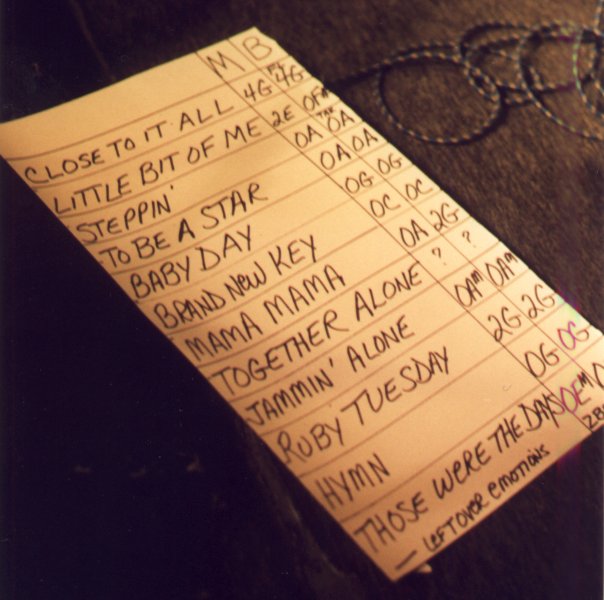 M B
CLOSE TO IT ALL 4G 4G
LITTLE BIT OF ME 2E OF#
STEPPIN' OA OA
TO BE A STAR OA OA
BABY DAY OG OG
BRAND NEW KEY OC OC
MAMA MAMA OA 2G
TOGETHER ALONE ? ?
JAMMIN' ALONE OAm OAm
RUBY TUESDAY 2G 2G
HYMN OG OG
THOSE WERE THE DAYS OEm
— LEFTOVER EMOTIONS